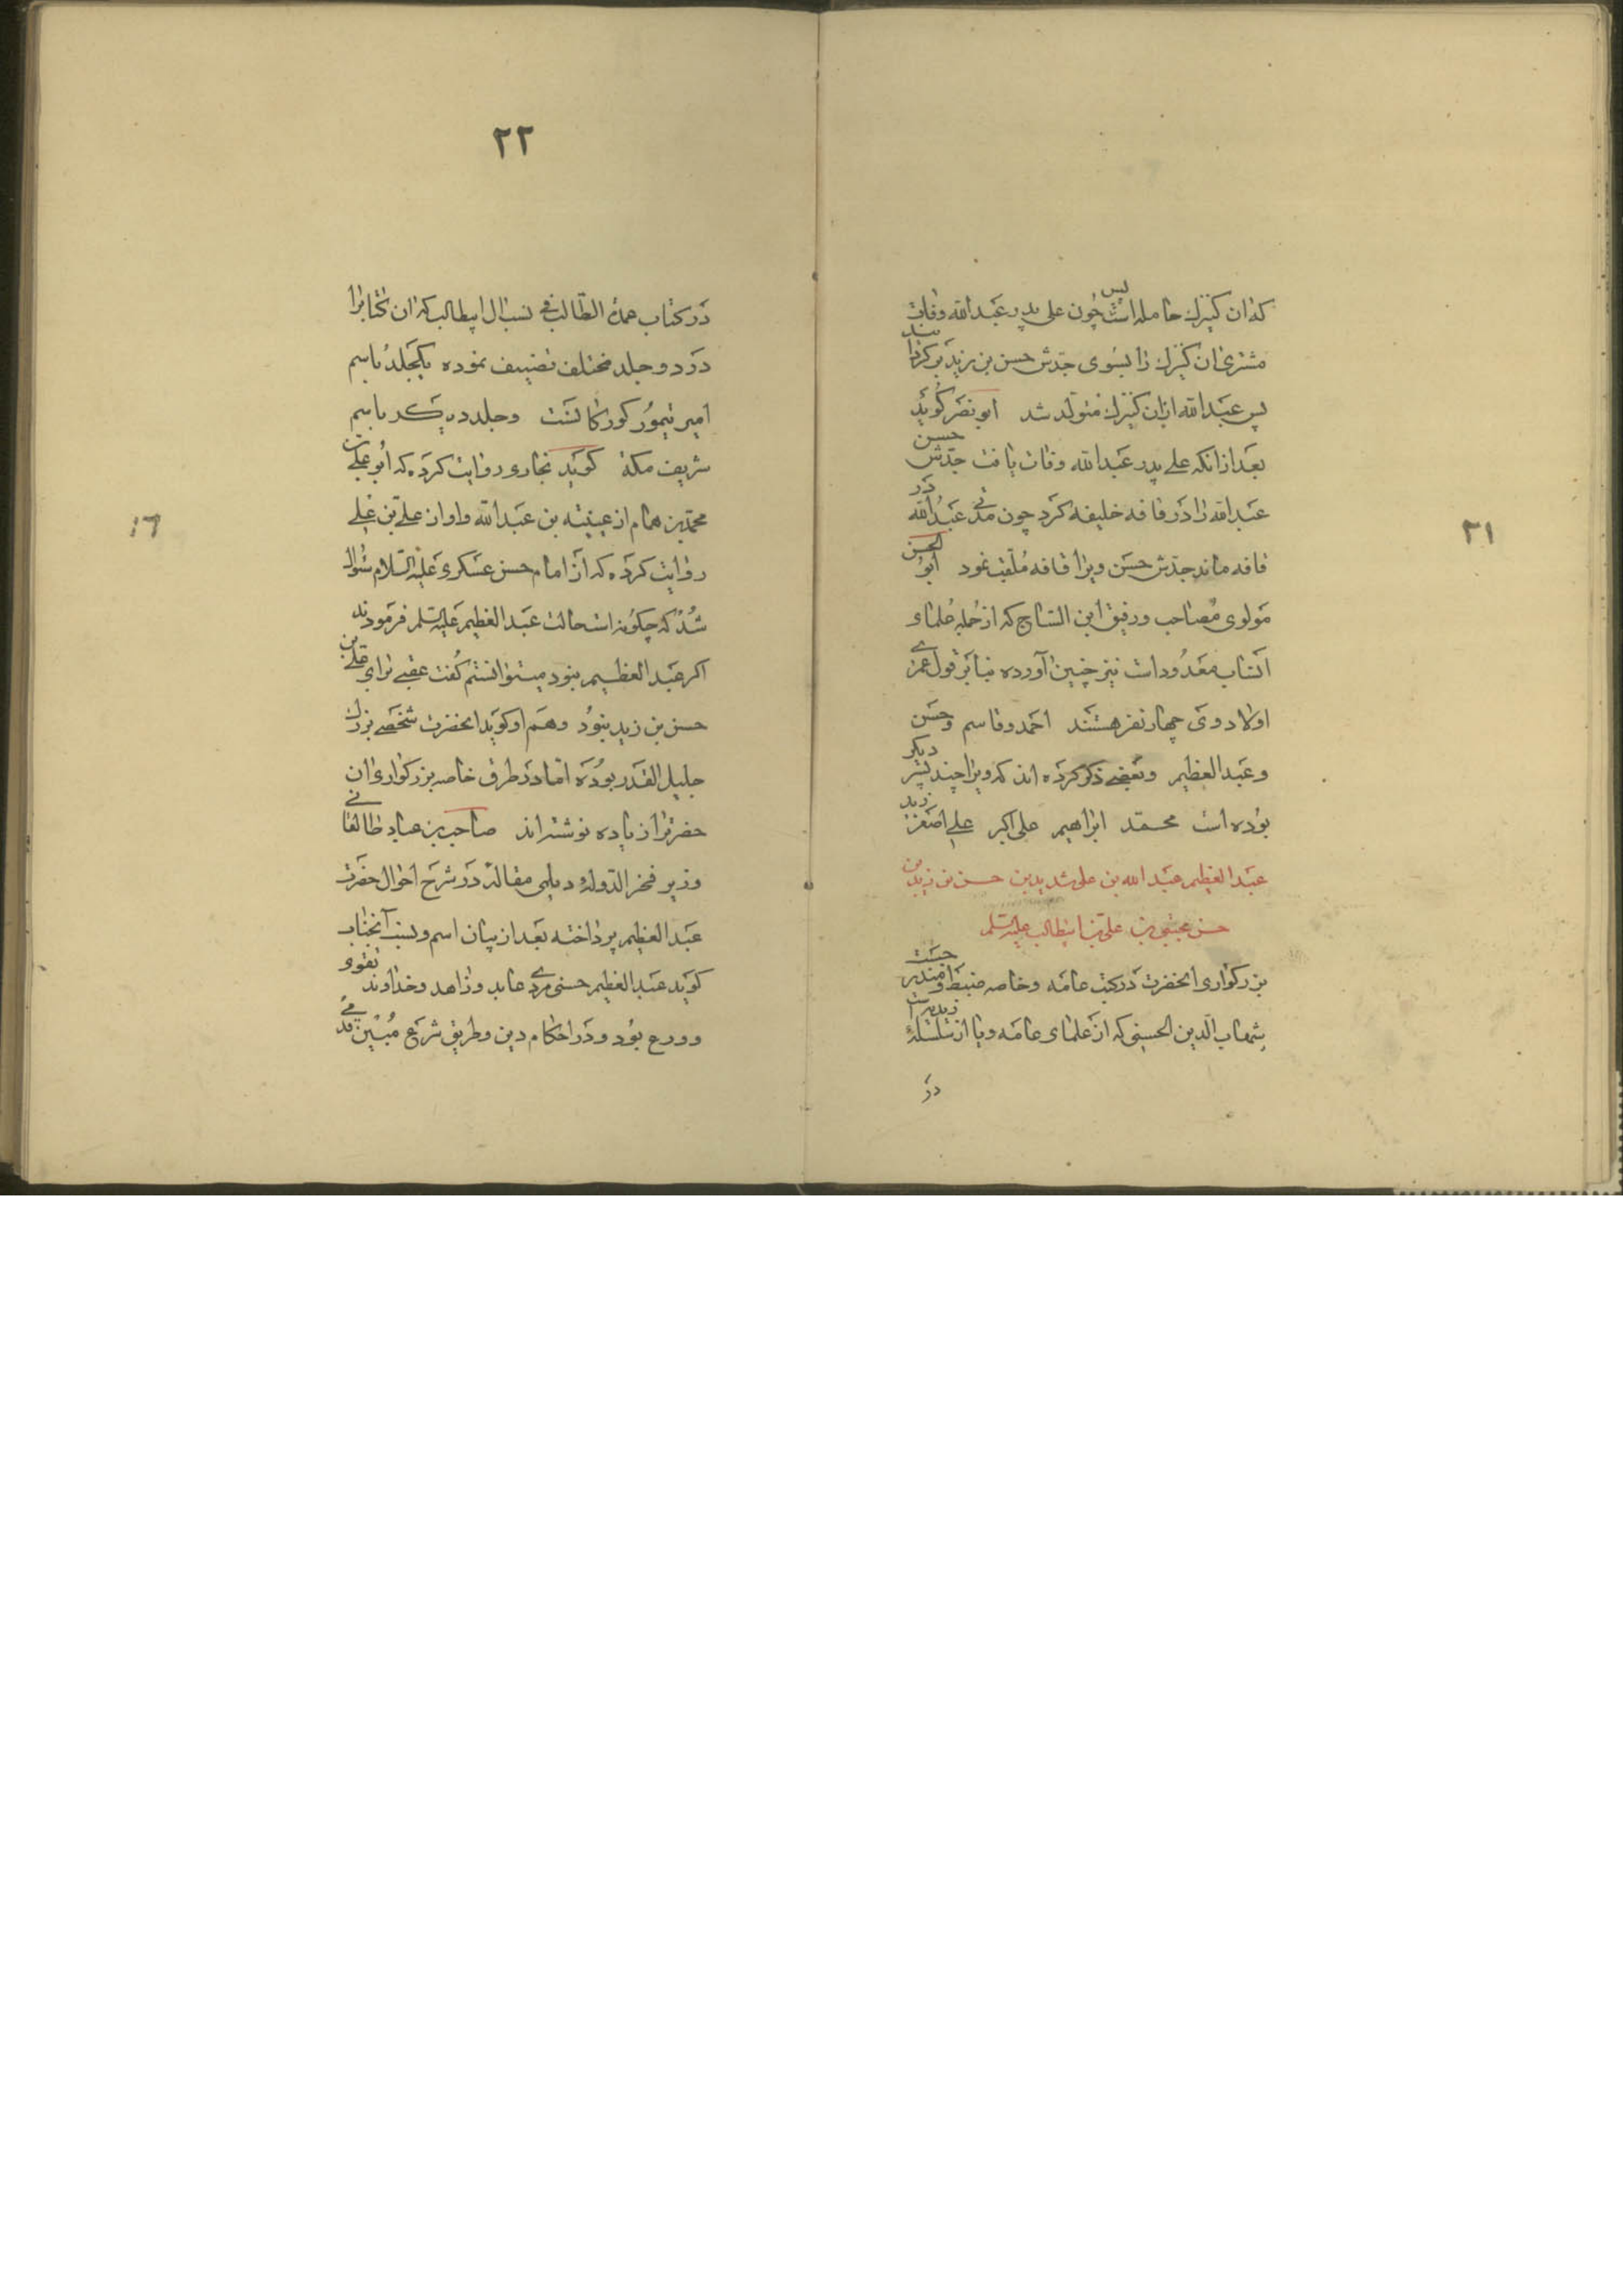 ۲۱
که ان کنیزك حامله است پس چون علی پدر عبدالله وفات
مشتری ان کنیزك را بسوی جدش حسن بن زید برگردانید
پس عبدالله ازان کنیزك متولد شد ابو نصر گوید
بعد ازانکه علی پدر عبدالله وفات یافت جدش حسن
عبدالله را در قافه خلیفه کرد چون مدتی عبدالله در
قافه ماند جدش حسن ویرا قافه ملقب نمود ابوالحسن
مولوی مصاحب ورفیق ابن الساج که از جمله علمای
انساب معدود است نیز چنین آورده بنابر قول عمری
اولاد وی چهار نفر هستند احمد وقاسم وحسن
وعبد العظیم وبعضی ذکر کرده اند که ویرا چند پسر دیگر
بوده است محمد ابراهیم علی اکبر علی اصغر زید
عبد العظیم عبد الله بن علی شدید بن حسن بن زید بن
حسن مجتبی بن علی بن ابیطالب علیه السلم
بزرگواری انحضرت در کتب عامه وخاصه ضبط
شهاب الدین الحسینی که از علمای عامه ویا از سلسلهٔ زیدیه است
در
۲۲
در کتاب عمدة الطالب فی نسب ال ابیطالب که ان کتابرا
در دو جلد مختلف تصنیف نموده یکجلد باسم
امیر تیمور کورکانست وجلد دیگر باسم
شریف مکه گوید بخاری روایت کرده که ابو علی بن
محمد بن همام از عیینه بن عبدالله واواز علی بن علی
روایت کرده که از امام حسن عسکری علیه السلام سؤال
شد که چگونه است حالت عبد العظیم علیه السلم فرمودند
اگر عبد العظیم نبود میتوانستم گفت عقبی برای علی بن
حسن بن زید نبود وهم او گوید انحضرت شخصی بزرك
جلیل القدر بوده اما در طرق خاصه بزرگواری ان
حضرترا زیاده نوشته اند صاحب بن عباد طالقانی
وزیر فخر الدوله دیلمی مقالهٔ در شرح احوال حضرت
عبد العظیم پرداخته بعد از بیان اسم ونسب آنجناب
گوید عبد العظیم حسنی مردی عابد وزاهد وخداوند تقوی
وورع بود ودر احکام دین وطریق شرع مبین قدمی
۱۶